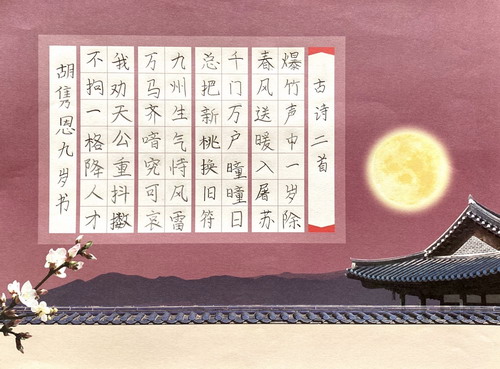 古诗二首
爆竹声中一岁除
春风送暖入屠苏
千门万户瞳瞳日
总把新桃换旧符
九州生气恃风雷
万马齐喑究可哀
我劝天公重抖擞
不拘一格降人才
胡隽恩九岁书